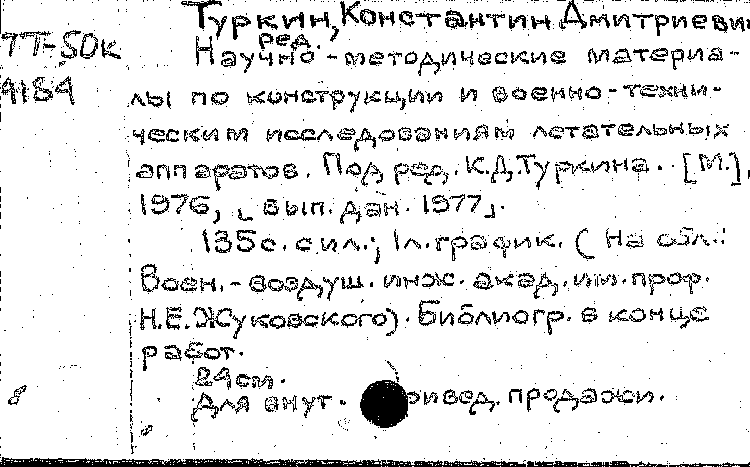 Туркин, Константин Дмитриевич
ред.
ТТ-50к
Научно-методические материа-
4184
лы по конструкции и военно-техни-
ческим исследованиям летательных
аппаратов. Под ред. К.Д.Туркина. [М.],
1976, [вып. дан. 1977].
135с. с ил.; 1л.график. (На обл.:
Воен.-воздуш. инж. акад. им. проф.
Н.Е.Жуковского). Библиогр. в конце
работ.
24см.
8
Для внут. продажи.